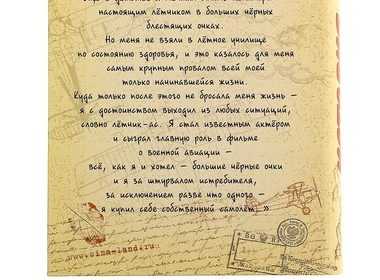 настоящим лётчиком в больших чёрных
блестящих очках.
Но меня не взяли в лётное училище
по состоянию здоровья, и это казалось для меня
самым крупным провалом всей моей
только начинавшейся жизни.
Куда только после этого не бросала меня жизнь –
я с достоинством выходил из любых ситуаций,
словно лётчик-ас. Я стал известным актёром
и сыграл главную роль в фильме
о военной авиации –
всё, как я и хотел – большие чёрные очки
и я за штурвалом истребителя,
за исключением разве что одного –
я купил себе собственный самолёт...»
www.sima-land.ru